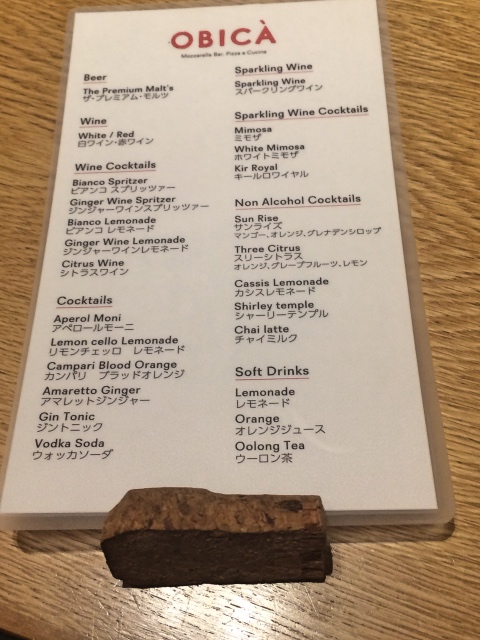 OBICÀ
Mozzarella Bar, Pizza e Cucina
Beer
The Premium Malt's
ザ・プレミアム・モルツ
Wine
White / Red
白ワイン・赤ワイン
Wine Cocktails
Bianco Spritzer
ビアンコ スプリッツァー
Ginger Wine Spritzer
ジンジャーワインスプリッツァー
Bianco Lemonade
ビアンコ レモネード
Ginger Wine Lemonade
ジンジャーワインレモネード
Citrus Wine
シトラスワイン
Cocktails
Aperol Moni
アペロールモーニ
Lemon cello Lemonade
リモンチェッロ レモネード
Campari Blood Orange
カンパリ ブラッドオレンジ
Amaretto Ginger
アマレットジンジャー
Gin Tonic
ジントニック
Vodka Soda
ウォッカソーダ
Sparkling Wine
Sparkling Wine
スパークリングワイン
Sparkling Wine Cocktails
Mimosa
ミモザ
White Mimosa
ホワイトミモザ
Kir Royal
キールロワイヤル
Non Alcohol Cocktails
Sun Rise
サンライズ
マンゴー、オレンジ、グレナデンシロップ
Three Citrus
スリーシトラス
オレンジ、グレープフルーツ、レモン
Cassis Lemonade
カシスレモネード
Shirley temple
シャーリーテンプル
Chai latte
チャイミルク
Soft Drinks
Lemonade
レモネード
Orange
オレンジジュース
Oolong Tea
ウーロン茶